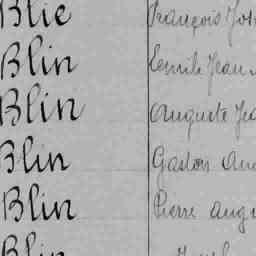 Blie François Jos
Blin Emile Jean
Blin Auguste Jea
Blin Gaston Au
Blin Pierre Augu
Blin